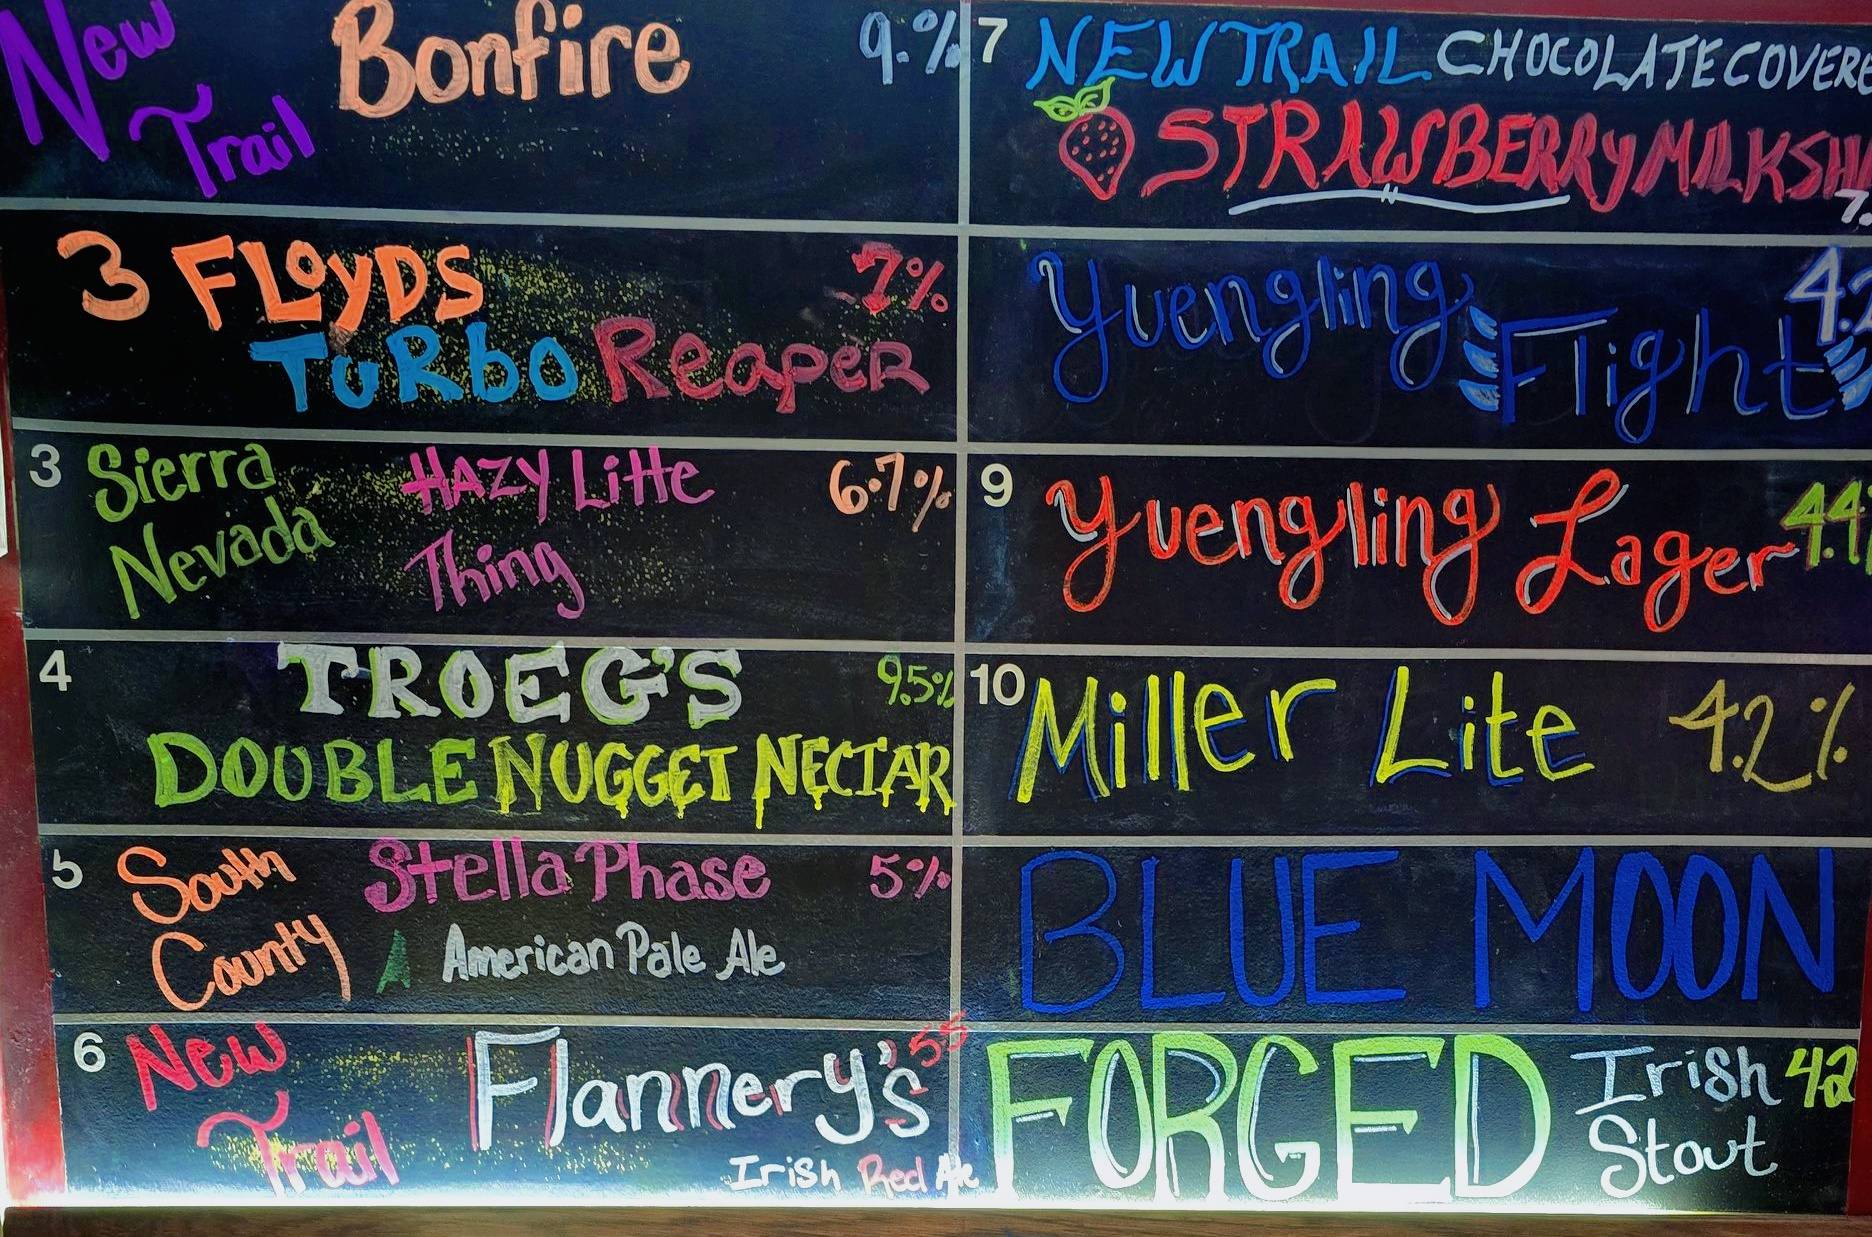 New Bonfire 9.%
Trail
3 FLOYDS 7%
TuRbo Reaper
3 Sierra HAZY Little 6.7%
Nevada Thing
4 TROEG'S 9.5%
DOUBLE NUGGET NECTAR
5 South Stella Phase 5%
County American Pale Ale
6 New Flannery's 55
Trail Irish Red Ale
7 NEW TRAIL CHOCOLATE COVERE
STRAWBERRY MILKSH
7.
Yuengling 4.2
Flight
9 Yuengling Lager 4.4
10 Miller Lite 4.2%
BLUE MOON
FORGED Irish 42
Stout